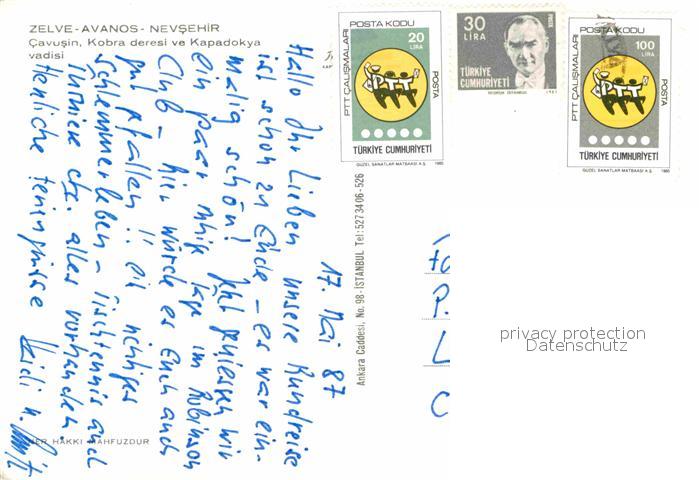 ZELVE - AVANOS - NEVŞEHİR
Çavuşin, Kobra deresi ve Kapadokya
vadisi
POSTA KODU
20
LİRA
PTT ÇALIŞMALARI
POSTA
PTT
TÜRKİYE CUMHURİYETİ
GÜZEL SANATLAR MATBAASI A.Ş. 1985
30
LİRA
POSTA
TÜRKİYE
CUMHURİYETİ
1981
POSTA KODU
100
LİRA
PTT ÇALIŞMALARI
POSTA
PTT
TÜRKİYE CUMHURİYETİ
GÜZEL SANATLAR MATBAASI A.Ş. 1985
17. Mai 87
Hallo Ihr Lieben unsere Rundreise
ist schon zu Ende - es war ein-
malig schön! Jetzt geniessen wir
ein paar Tage im Robinson
Club - hier würde es Euch auch
gut gefallen!! ein richtiges
Schlemmerleben - Tischtennis auch
Turniere etc. alles vorhanden
Herzliche Feriengrüsse Heidi u.
Ankara Caddesi, No. 98 - İSTANBUL Tel: 527 34 06 - 526
HER HAKKI MAHFUZDUR
P.
L
C
privacy protection
Datenschutz